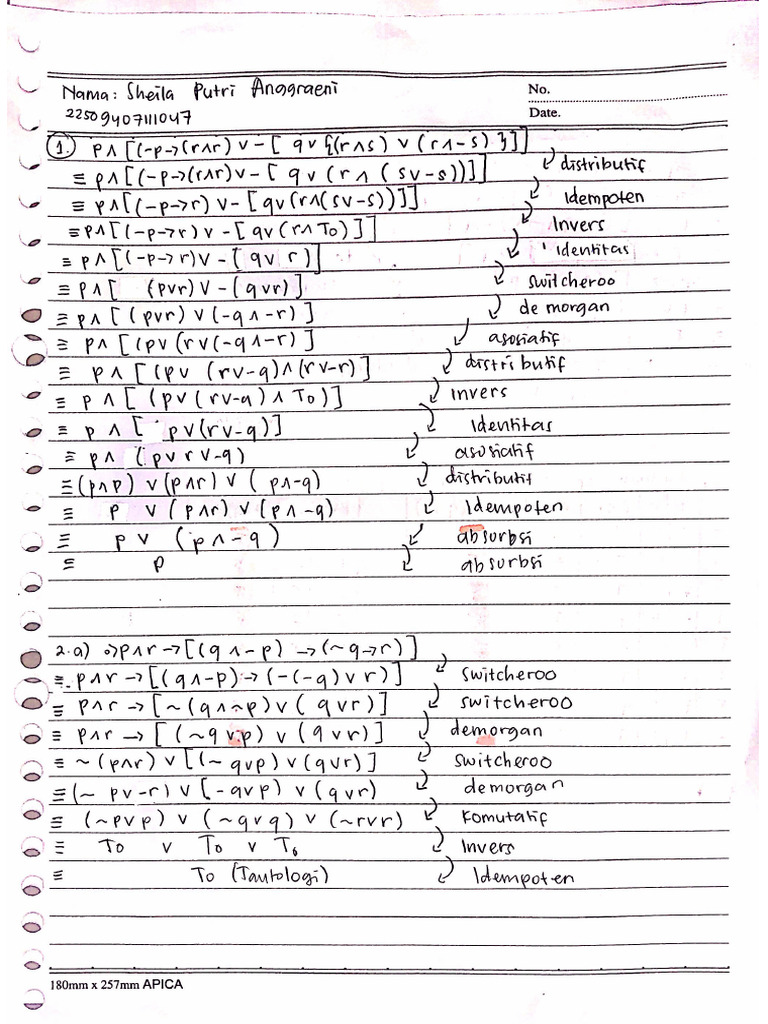 Nama: Sheila Putri Anggraeni No.
225094071111047 Date.
1. p∧[(-p→(r∧r) ∨ -[ q∨{(r∧s) ∨ (r∧-s) }]]
≡ p∧[(-p→(r∧r)∨-[ q∨(r∧ ( s∨-s))]] distributif
≡ p∧[(-p→r) ∨-[q∨(r∧(s∨-s))]] Idempoten
≡p∧[(-p→r) ∨ -[q∨(r∧To)]] Invers
≡ p∧[(-p→r)∨-[q∨ r)] ' Identitas
≡ p∧[ (p∨r)∨-(q∨r)] switcheroo
≡ p∧[(p∨r)∨(-q∧-r)] de morgan
≡ p∧ [(p∨(r∨(-q∧-r)] asosiatif
≡ p∧[(p∨ (r∨-q)∧(r∨-r)] distributif
≡ p∧[(p∨(r∨-q)∧To)] invers
≡ p∧[ p∨(r∨-q)] Identitas
≡ p∧ (p∨r∨-q) asosiatif
≡(p∧p) ∨(p∧r) ∨ ( p∧-q) distributif
≡ p ∨(p∧r)∨(p∧-q) Idempoten
≡ p∨ (p∧-q) absorbsi
≡ p absorbsi
2.a) p∧r→[(q∧-p) →(~q→r)]
≡ p∧r→[(q∧-p)→(-(-q)∨r)] switcheroo
≡ p∧r→[~(q∧~p)∨( q∨r)] switcheroo
≡ p∧r→[(~q∨p)∨(q∨r)] demorgan
≡ ~(p∧r)∨[(~q∨p)∨(q∨r)] switcheroo
≡(~p∨-r)∨[-q∨p)∨(q∨r) demorgan
≡ (~p∨p)∨(~q∨q)∨(~r∨r) Komutatif
≡ To ∨ To ∨ To Invers
≡ To (Tautologi) Idempoten
180mm x 257mm APICA